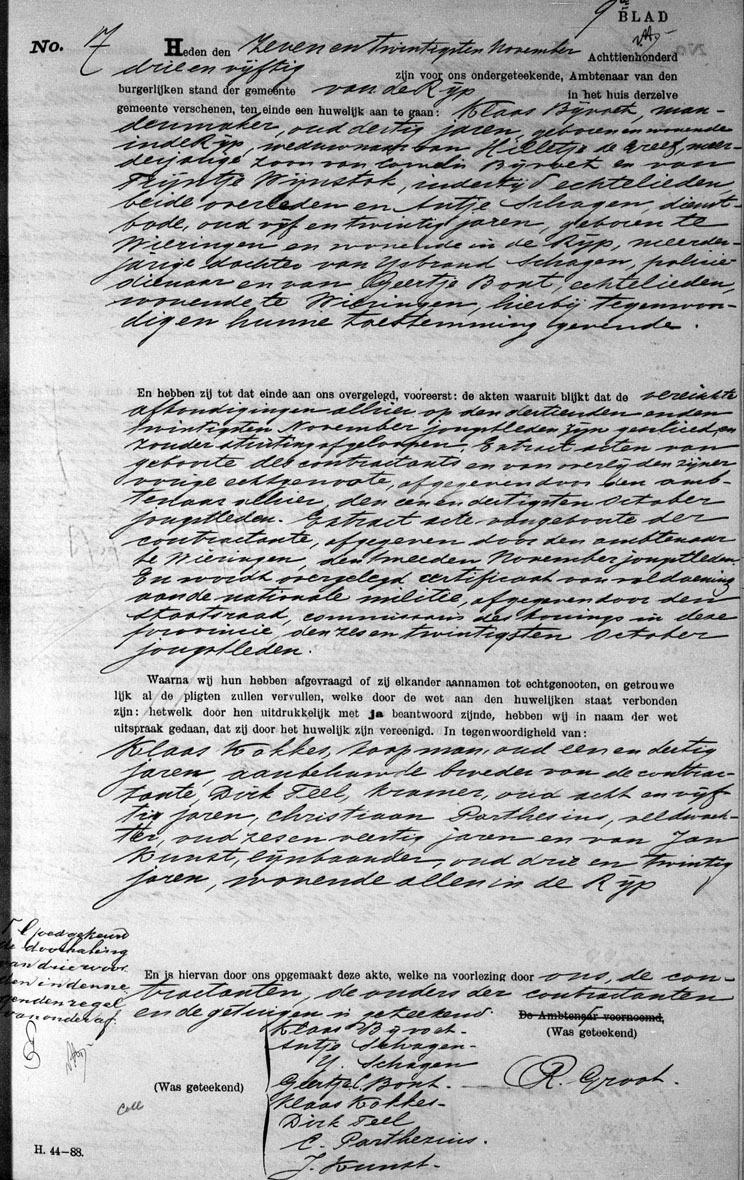 9de BLAD
No. 7 Heden den Zeven en twintigsten November Achttienhonderd
drie en vijftig zijn voor ons ondergeteekende, Ambtenaar van den
burgerlijken stand der gemeente van de Rijp in het huis derzelve
gemeente verschenen, ten einde een huwelijk aan te gaan: Klaas Bijvoet, man-
denmaker, oud dertig jaren, geboren en wonende
in de Rijp, weduwnaar van Hilletje de Vreef, meer-
derjarige zoon van Cornelis Bijvoet en van
Trijntje Wijnstok, in der tijd echtelieden,
beide overleden en Antje Schagen, dienst-
bode, oud vijf en twintig jaren, geboren te
Wieringen en wonende in de Rijp, meerder-
jarige dochter van IJsbrand Schagen, policie-
dienaar en van Geertje Bont, echtelieden,
wonende te Wieringen, hierbij tegenwoor-
dig en hunne toestemming gevende.
En hebben zij tot dat einde aan ons overgelegd, vooreerst: de akten waaruit blijkt dat de vereischte
afkondigingen alhier op den dertienden en den
twintigsten November jongstleden zijn geschied en
zonder stuiting afgeloopen. Extract acten van
geboorte des contractants en van overlijden zijner
vorige echtgenoote, afgegeven door den amb-
tenaar alhier, den een en dertigsten October
jongstleden. Extract acte van geboorte der
contractante, afgegeven door den ambtenaar
te Wieringen, den tweeden November jongstleden.
En wordt overgelegd certificaat van voldoening
aan de nationale militie, afgegeven door den
staatsraad, commissaris des konings in deze
provincie, den zes en twintigsten October
jongstleden.
Waarna wij hun hebben afgevraagd of zij elkander aannamen tot echtgenooten, en getrouwe
lijk al de pligten zullen vervullen, welke door de wet aan den huwelijken staat verbonden
zijn: hetwelk door hen uitdrukkelijk met ja beantwoord zijnde, hebben wij in naam der wet
uitspraak gedaan, dat zij door het huwelijk zijn vereenigd. In tegenwoordigheid van:
Klaas Kokkes, koopman, oud een en dertig
jaren, aanbehuwde broeder van de contrac-
tante, Dirk Teel, kramer, oud acht en vijf
tig jaren, Christiaan Parthesius, veldwach-
ter, oud zes en veertig jaren en van Jan
Kunst, lijnbaander, oud drie en twintig
jaren, wonende allen in de Rijp
Goedgekeurd
de doorhaling
van drie woor-
den in de
genden regel
van onder af.
En is hiervan door ons opgemaakt deze akte, welke na voorlezing door ons, de con-
tractanten, de ouders der contractanten
en de getuigen is geteekend.
De Ambtenaar voornoemd,
(Was geteekend)
R. Groot.
(Was geteekend)
Klaas Bijvoet.
Antje Schagen.
Y. Schagen
Geertje Bont.
Klaas Kokkes.
Dirk Teel
C. Parthesius.
J. Kunst.
Coll
H. 44—88.